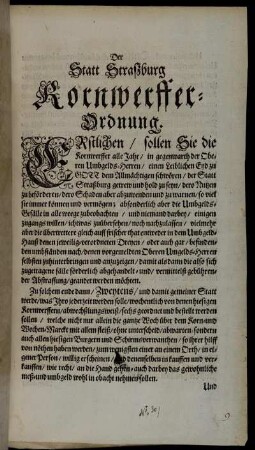 Der
Statt Straßburg
Kornwerffer-
Ordnung.
Erstlichen / sollen Sie die
Kornwerffer alle Jahr / in gegenwarth der Obe-
ren Umbgelds-Herren / einen Leiblichen Eyd zu
GOtt dem Allmächtigen schwören / der Statt
Straßburg getrew und hold zu seyn / dero Nutzen
zu befördern / dero Schaden aber abzuwenden und zu warnen / so viel
sie immer können und vermögen; absonderlich aber die Umbgelds-
Gefälle in alle wege zu beobachten / und niemand darbey / einigen
zugang willen / ichtwas zu übersehen / noch nachzulassen / vielmehr
aber die übertretter gleich auff frischer that entweder in dem Umbgeld-
Hauß denen jeweilig-verordneten Dreyen / oder auch gar / befinden-
den umbständen nach / denen vorgemelden Oberen Umgelds-Herren
selbsten zuhinterbringen und anzuzeigen / damit als dann die alle sich
zugetragene fälle förderlich abgehandelt / und / vermittelst gebühren-
der Abstraffung / geandet werden möchten.
Zu solchem ende dann / Zweytens / und damit gemeiner Statt
werde / was Ihro jederzeit werden solle / wochentlich von denen hiesigen
Kornwerffern / abwechßlungsweiß / sechs geordnet und bestellt werden
sollen / welche nicht nur allein die gantze Woch über dem Korn- und
Wochen-Marckt mit allem fleiß / ohne unterscheid / abwarten / sondern
auch allen hiesigen Burgern und Schirmsverwanthen / so ihrer hilff
von nöthen haben werden / zum wenigsten einer an einem Orth / in ei-
gener Person / willig erscheinen / und denenselben in kauffen und ver-
kauffen / wie recht / an die Hand gehen / auch darbey das gewohnliche
meß- und umbgeld wohl in obacht nehmen sollen.
Und